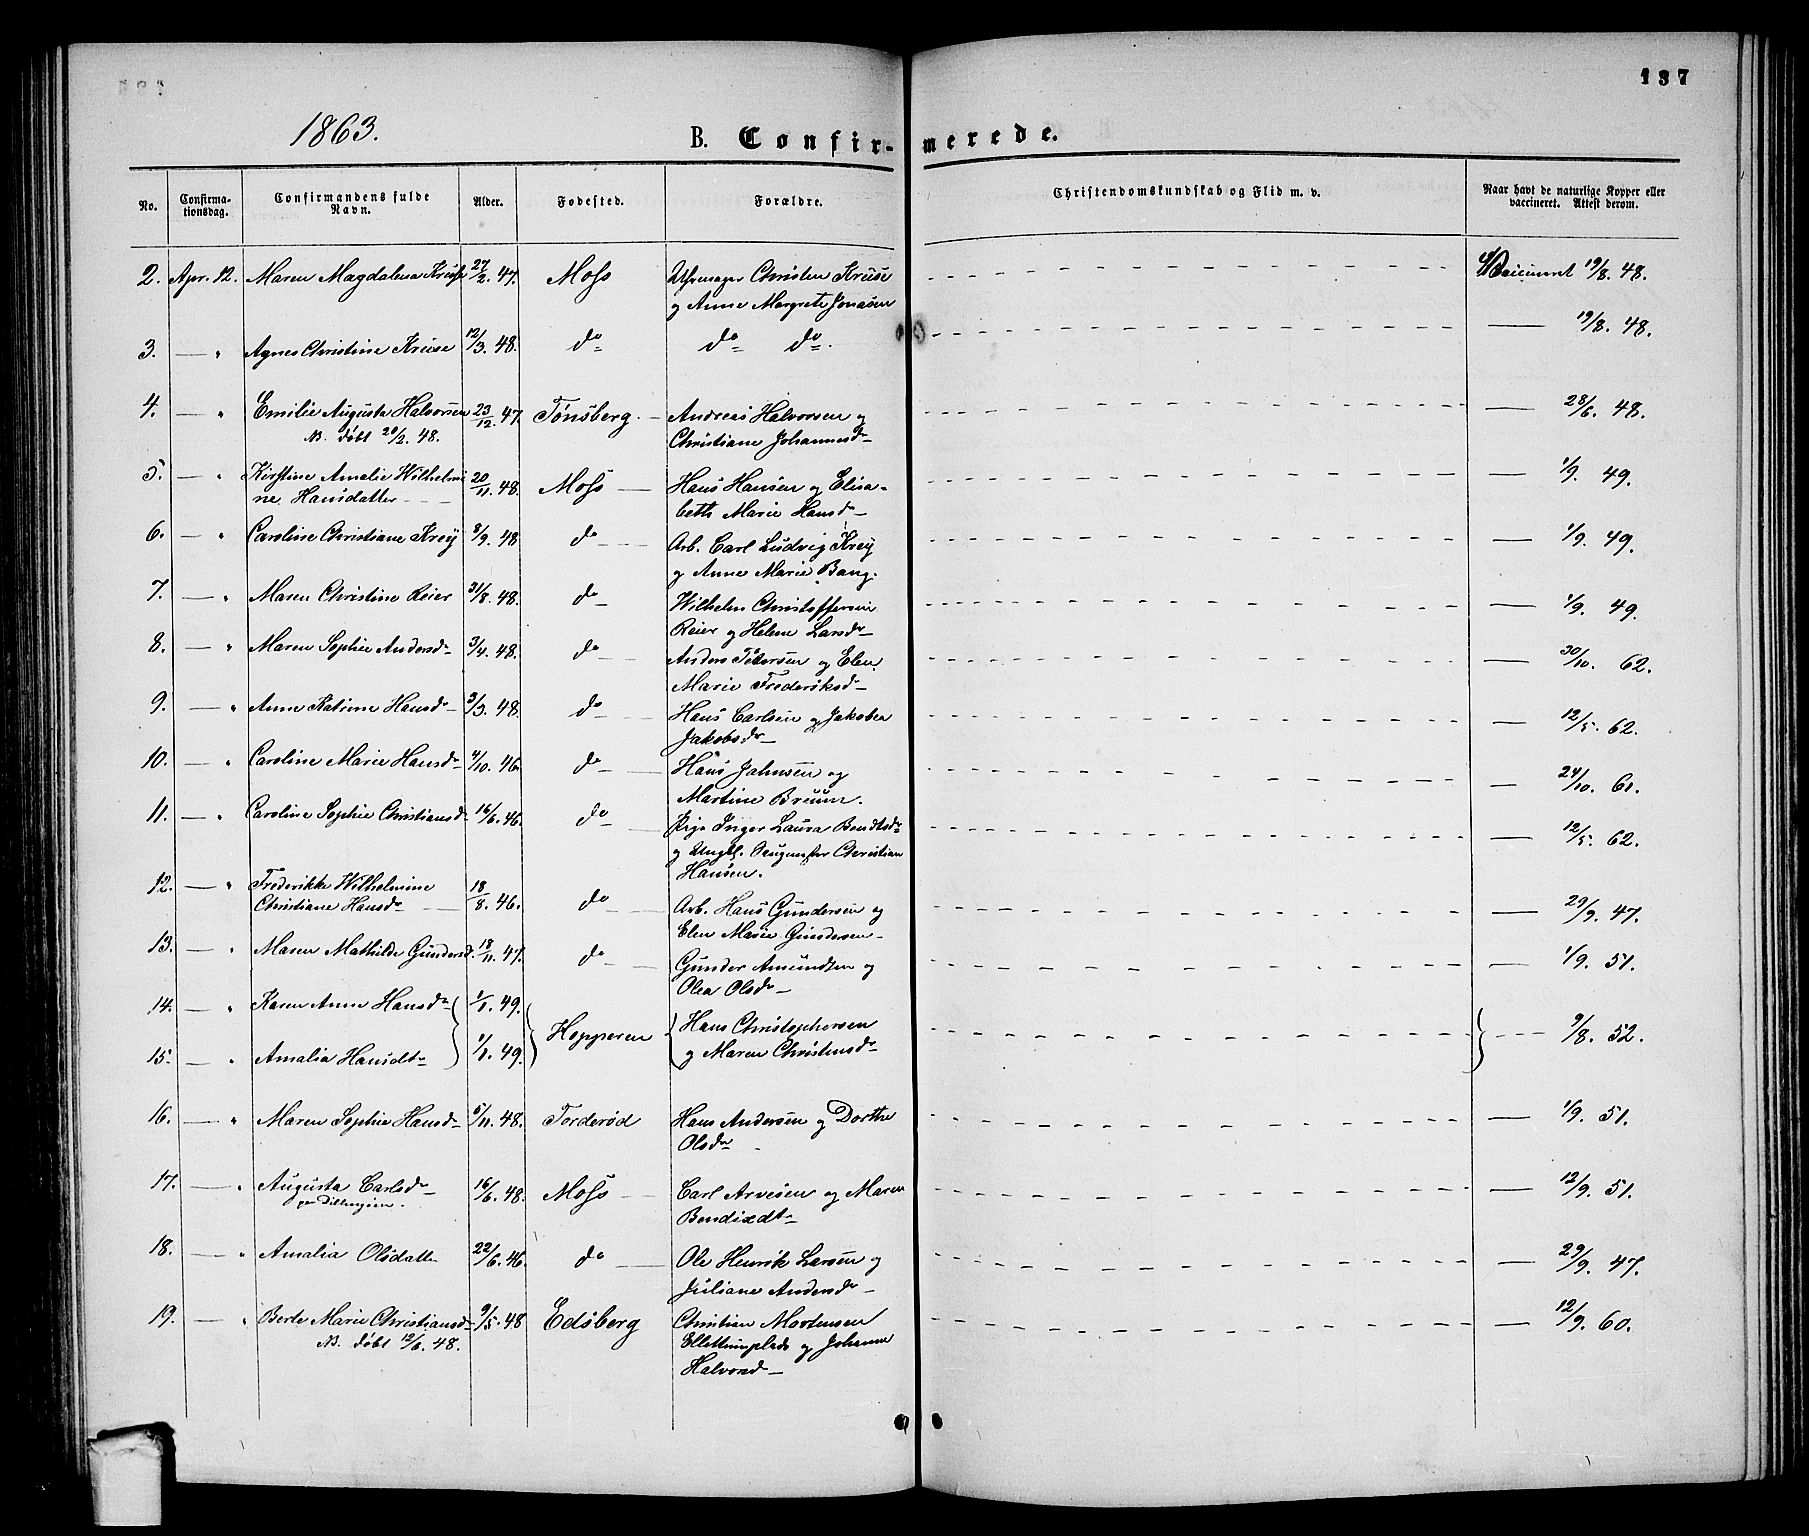 137
1863.
B. Confirmerede.
No.
Confirmationsdag.
Confirmandens fulde Navn.
Alder.
Fødested.
Forældre.
Christendomskundskab og Flid m. v.
Naar havt de naturlige Kopper eller vaccineret. Attest derom.
2. Apr. 12. Maren Magdalena Kruse 27/2. 47. Moss Uhrmager Christen Kruse Vaccineret 19/8. 48.
og Anne Margrete Jonasen
3. — " Agnes Christine Kruse 12/3. 48. do do do. — 19/8. 48.
4. — " Emilie Augusta Halvorsen 23/12. 47. Tønsberg. Andreas Halvorsen og — 28/6. 48.
NB. døbt 20/2. 48. Christiane Johannesdr
5. — " Kirstine Amalie Wilhelmi 20/11. 48. Moss Hans Hansen og Elisa- — 1/9. 49.
ne Hansdatter beth Marie Hansdr
6. — " Caroline Christiane Krey 8/9. 48 do Arb. Carl Ludvig Krey — 1/9. 49.
og Anne Marie Bang.
7. — " Maren Christine Reier 31/8. 48. do Wilhelm Christoffersen — 1/9. 49.
Reier og Helene Larsdr
8. — " Maren Sophie Andersdr 3/4. 48. do Anders Petersen og Elen — 30/10. 62.
Marie Frederiksdr
9. — " Anne Katrine Hansdr 3/3. 48. do Hans Carlsen og Jakobea — 12/5. 62.
Jakobsdr
10. — " Caroline Marie Hansdr 4/10. 46. do Hans Jahnsen og — 24/10. 61.
Martine Bruun.
11. — " Caroline Sophie Christiansd 16/6. 46. do Pige Inger Laura Bendtsdr — 12/5. 62.
og Ungk. Christian
Hansen.
12. — " Frederikke Wilhelmine 18/8. 46. do Arb. Hans Gundersen og — 29/9. 47.
Christiane Hansdr Elen Marie Gundersen
13. — " Maren Mathilde Gundersd. 18/11. 47. do Gunder Amundsen og — 1/9. 51.
Olea Olsdr
14. — " Karen Anne Hansdr 1/1. 49. Hopperen Hans Christophersen — 9/8. 52.
15. — " Amalia Hansdtr 1/1. 49. og Maren Christensdr
16. — " Maren Sophie Hansdr 5/11. 48. Torderød Hans Andersen og Dorthe — 1/9. 51.
Olsdr
17. — " Augusta Carlsdr 16/6. 48. Moss Carl Arvesen og Maren — 12/9. 51.
paa Dillingøen. Bendixdtr
18. — " Amalia Olsdatter 22/6. 46. do Ole Henrik Larsen og — 29/9. 47.
Juliane Andersdr
19. — " Berte Marie Christiansd 9/5. 48 Edsberg Christian Mortensen — 12/9. 60.
NB. døbt 12/6. 48. og Johanne
Halvorsdr